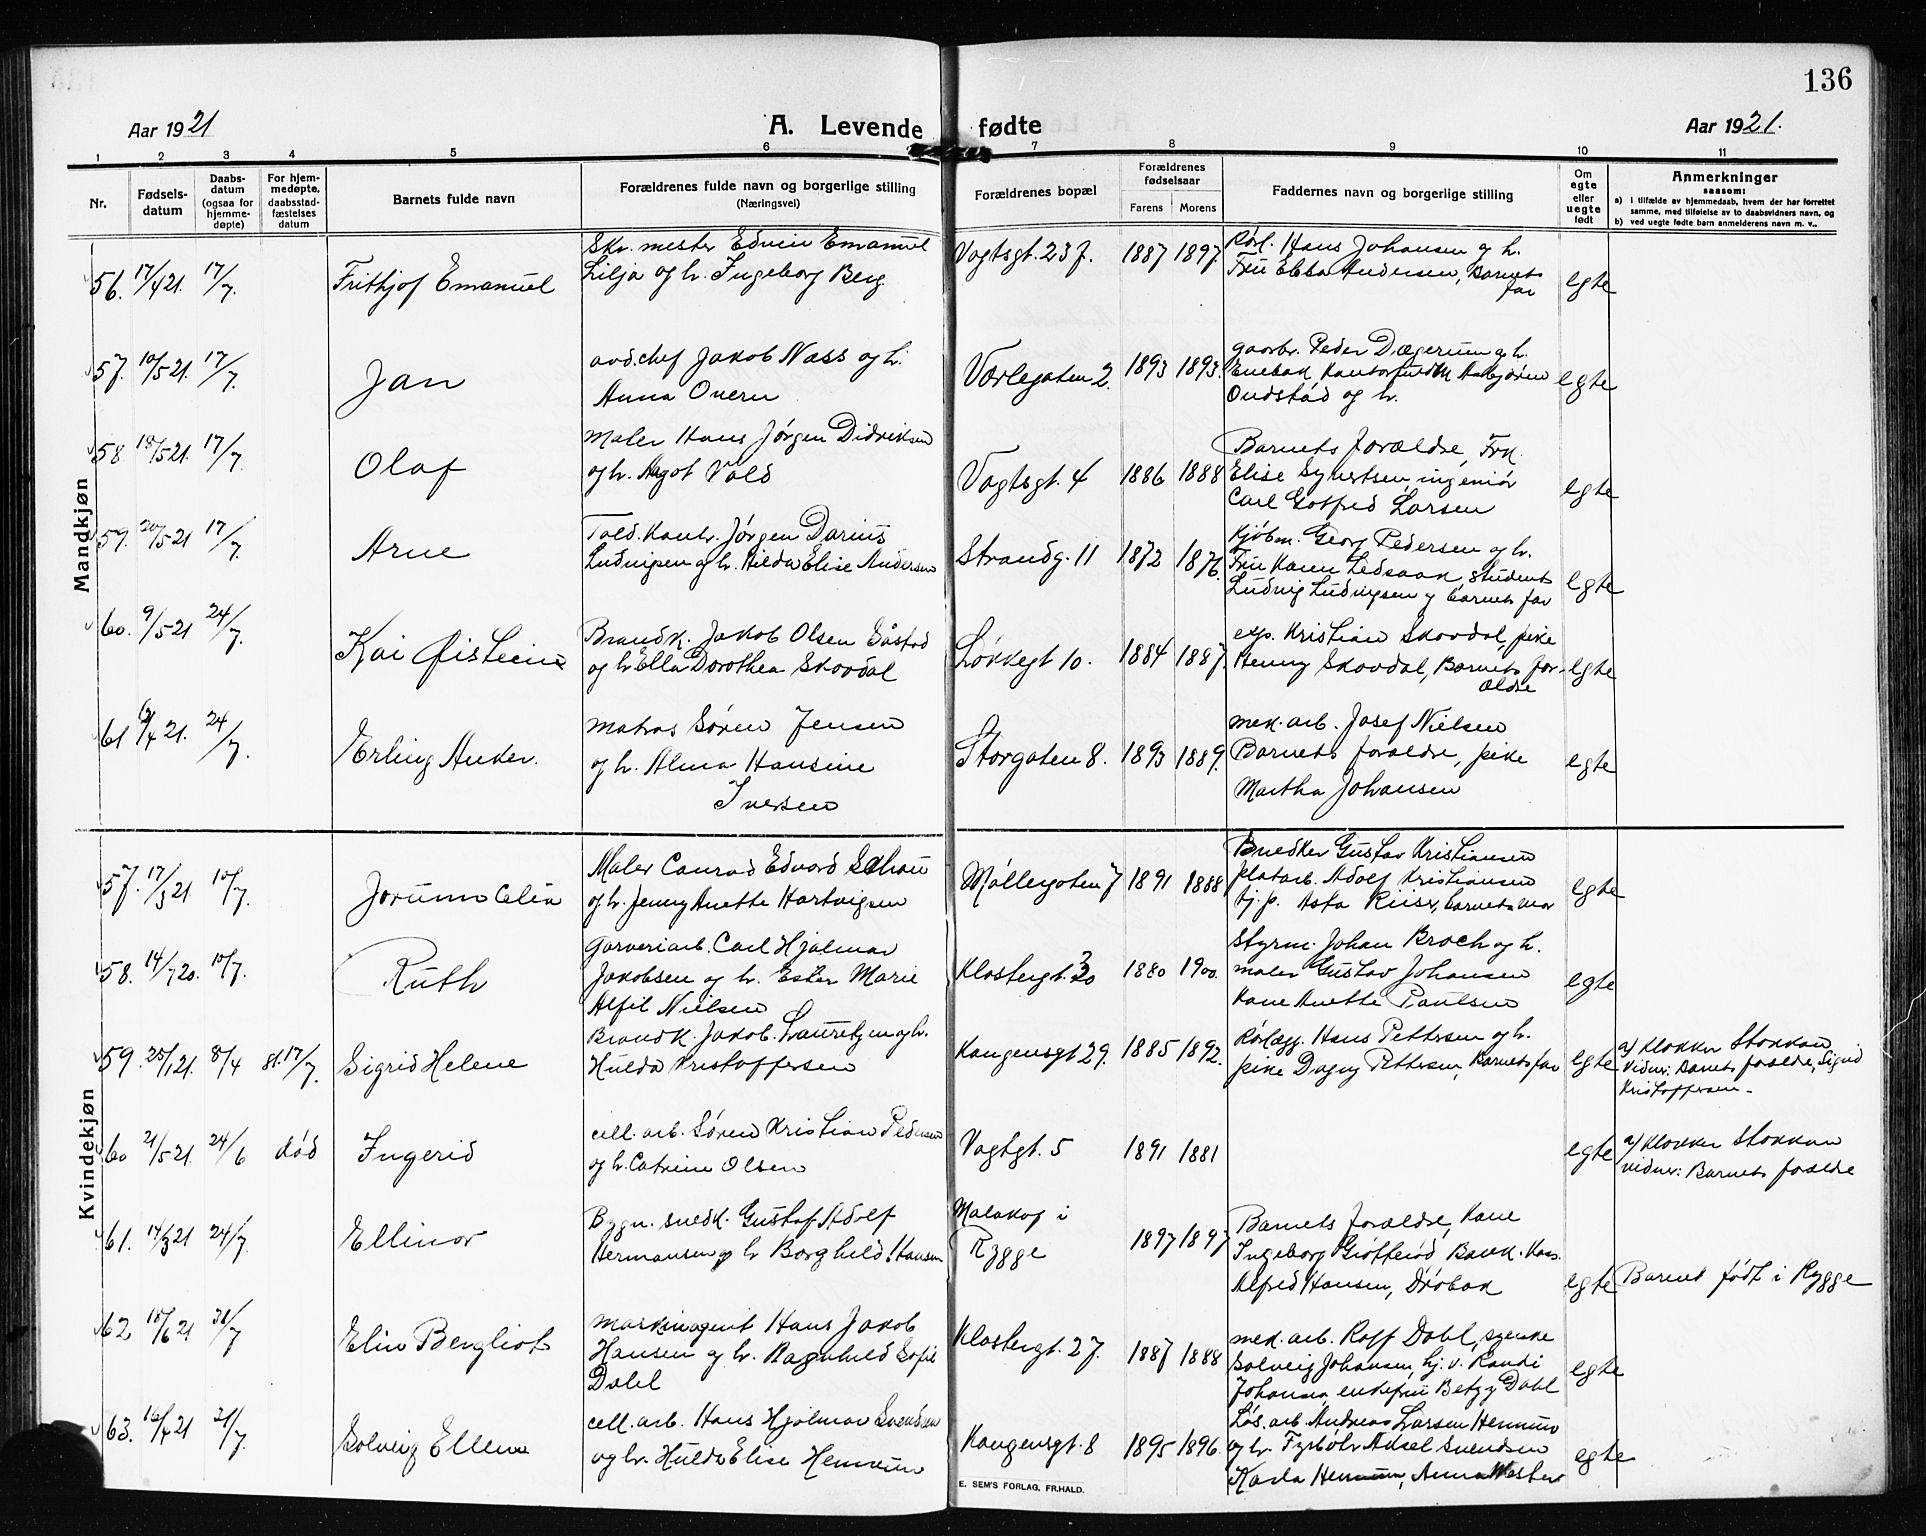 136
Aar 1921
A. Levende fødte
Aar 1921.
1 2 3 4 5 6 7 8 9 10 11
Nr.
Fødsels-datum
Daabs-datum (ogsaa for hjemme-døpte)
For hjem-medøpte, daabsstad-fæstelses datum
Barnets fulde navn
Forældrenes fulde navn og borgerlige stilling
(Næringsvei)
Forældrenes bopæl
Forældrenes fødselsaar
Farens Morens
Faddernes navn og borgerlige stilling
Om egte eller uegte født
Anmerkninger
saasom:
a) i tilfælde av hjemmedaab, hvem der har forrettet
samme, med tilføielse av to daabsvidners navn, og
b) ved uegte fødte barn anmelderens navn m. v.,
Mandkjøn
56. 17/4 21. 17/7. Frithjof Emanuel
Skr. mester Edvin Emanuel
Lilja og h. Ingeborg Berg.
Vogtsgt. 23 f. 1887 1897
Rørl. Hans Johansen og h.
Fru Ebba Andersen, Barnets
far
egte
57. 10/5 21. 17/7. Jan
avd.chef Jakob Næss og h.
Anna Overn
Værlegaten 2. 1893 1893.
gaarbr. Peder Dægerum og h.
Enebak, Asbjørn
Ondstad og h.
egte
58 18/5 21. 17/7. Olaf
Maler Hans Jørgen Didriksen
og h. Aagot Vold
Vogtsgt. 4 1886 1888
Barnets forældre, Frk.
Elise Syvertsen, ingeniør
Carl Gotfred Larsen
egte
59. 20/5 21 17/7. Arne
Told.kontr. Jørgen Darius
Ludvigsen og h. Hilda Elise Andersen
Strandg. 11 1872 1876.
Kjøbm. Georg Pedersen og h.
Fru Karen Ledsaak, student
Ludvig Ludvigsen og barnets far
egte
60. 9/5 21 24/7. Kai Øistein
Brandk. Jakob Olsen Gåstad
og h. Ella Dorothea Skovdal
Løkkegt 10. 1884 1887.
exp. Kristian Skovdal, pike
Henny Skovdal, Barnets for-
ældre
egte
61 /4 21. 24/7. Erling Anker.
Matros Søren Jensen
og h. Alma Hansine
Iversen
Storgaten 8. 1893 1889.
mek. arb. Josef Nielsen
Barnets forældre, pike
Martha Johansen
egte
Kvindekjøn
57. 17/3 21. 10/7. Jorunn Celia
Maler Conrad Edvard Schou
og h. Jenny Anette Hartvigsen
Møllergaten 7 1891 1888
Snedker Gustav Kristiansen
fatarb. Adolf Kristiansen
tj.p. Asta Riise, barnets mor
egte
58. 14/7 20. 10/7. Ruth
Garveriarb. Carl Hjalmar
Jakobsen og h. Ester Marie
Alfil Nielsen
Klostergt. 20 1880 1900.
Styrm. Johan Broch og h.
maler Gustav Johansen
Kone Anette Paulsen
egte
59. 25/1 21. 8/4 st. 17/7. Sigrid Helene
Brandk. Jakob Lauretzen og h.
Hulda Kristoffersen
Kongensgt 29. 1885 1892.
Rørlægg. Hans Pettersen og h.
pike Dagny Pettersen, Barnets far
egte
a/ Klokker Stokkan
Vidner: Barnets forældre, Sigrid
Kristoffersen.
60 21/5 21. 24/6 død Ingerid
cell. arb. Søren Kristian Pedersen
og h. Catrine Olsen
Vogtgt. 5 1891 1881
egte
a/ Klokker Stokkan
vidner: Barnets forældre
61. 14/3 21 24/7. Ellinor
Bygn. snedk. Gustaf Adolf
Hermansen og h. Borghild Hansen
Malakof i
Rygge
1897 1897
Barnets forældre, Kone
Ingeborg Grøtterød Bank. Kas.
Alfred Hansen, Drøbak
egte
Barnet født i Rygge
62 18/6 21. 31/7 Elin Bergliot
maskinagent Hans Jakob
Hansen og h. Ragnhild Sofie
Dahl
Klostergt. 27. 1887 1888
mek. arb. Rolf Dahl, syerske
Solveig Johansen, hj. v. Randi
Johansen, enkefru Betzy Dahl
egte
63. 16/4 21 31/7. Solveig Ellen
cell. arb. Hans Hjalmar Svendsen
og h. Hulda Elise Hennum
Kongensgt. 8 1895 1896.
Løs. arb. Andreas Larsen Hennum
og h. Fyrbøter Aksel Svendsen
Karla Hennum, Anna Wester
egte
E. SEM'S FORLAG, FR.HALD.